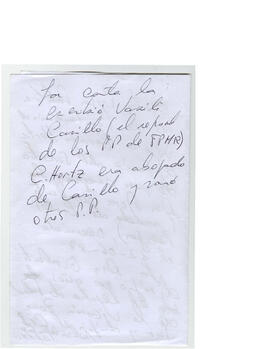 la carta la
escribió Vasili
Carillo (el repres
de los PP de FPMR)
C. Hertz era abogado
de Carillo y varios
otros P.P.